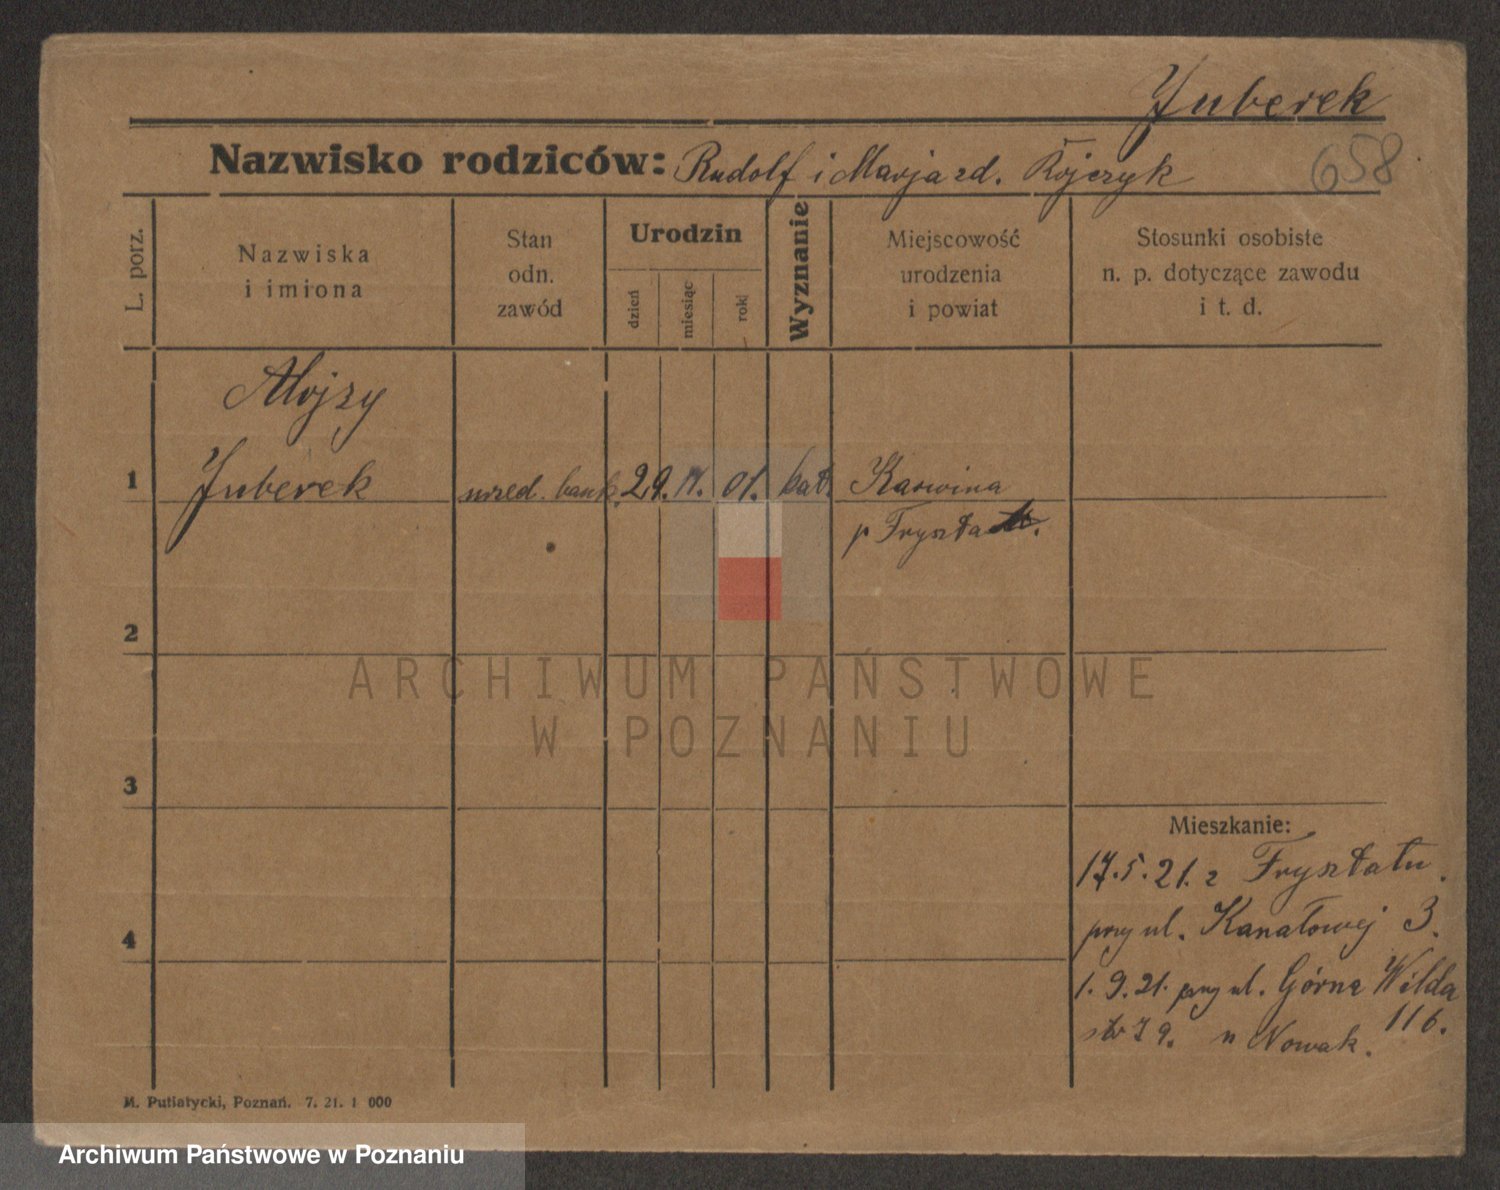 Juberek
Nazwisko rodziców: Rudolf i Marja zd. Kojczyk
658
L. porz.
Nazwiska
i imiona
Stan
odn.
zawód
Urodzin
dzień
miesiąc
rok
Wyznanie
Miejscowość
urodzenia
i powiat
Stosunki osobiste
n. p. dotyczące zawodu
i t. d.
Alojzy
1 Juberek urzed. bank. 29. 01. kat. Karwina
p Frysztat.
2
3
4
Mieszkanie:
17.5.21. z Frysztatu.
przy ul. Kanałowej 3.
1.9.21. przy ul. Górna Wilda
116.
79. u Nowak.
M. Putiatycki, Poznań. 7. 21. 1 000
ARCHIWUM PAŃSTWOWE
W POZNANIU
Archiwum Państwowe w Poznaniu